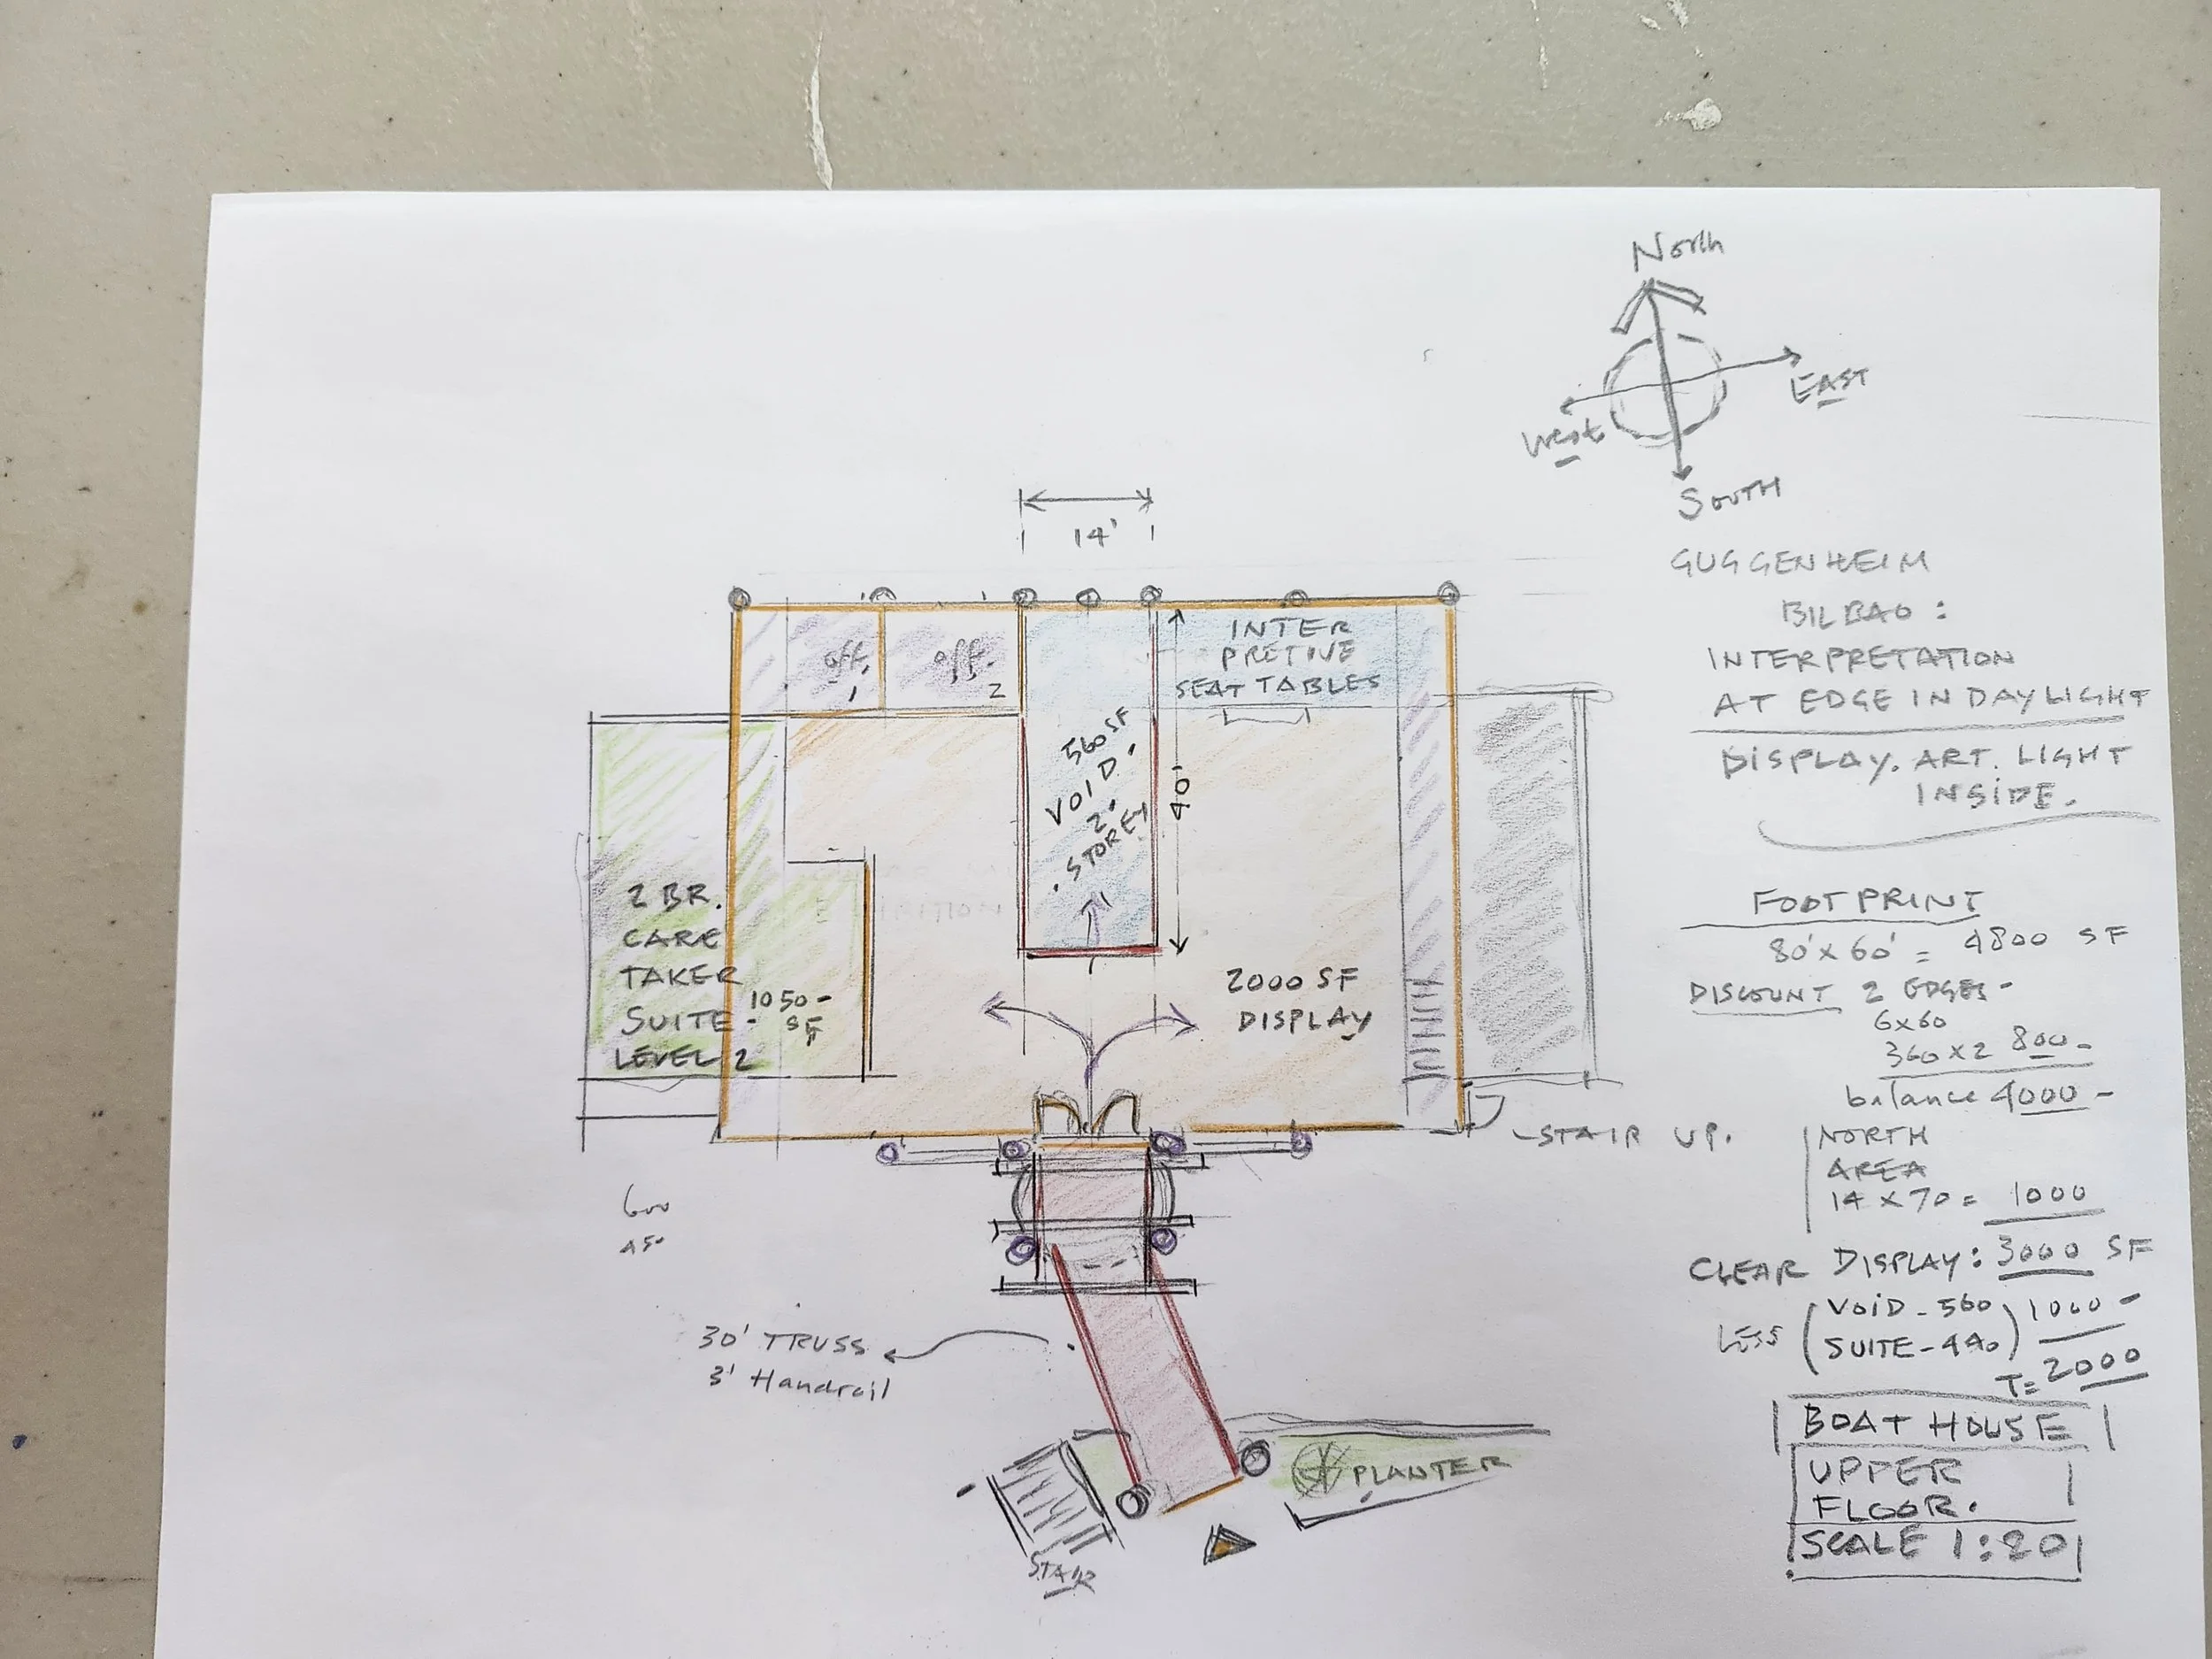 North
EAST
West
SOUTH
14'
GUGGENHEIM
BILBAO :
INTERPRETATION
AT EDGE IN DAYLIGHT
DISPLAY. ART. LIGHT
INSIDE.
off.
1
off.
2
560 SF
VOID.
2.
. STOREY
40'
INTER
PRETIVE
SEAT TABLES
2 BR.
CARE
TAKER
SUITE -
LEVEL 2
1050 -
SF
2000 SF
DISPLAY
STAIR UP.
600
450
30' TRUSS
3' Handrail
STAIR
PLANTER
FOOTPRINT
80' X 60' = 4800 SF
DISCOUNT 2 EDGES -
6X60
360 X 2 800 -
balance 4000 -
NORTH
AREA
14 X 70 = 1000
CLEAR DISPLAY: 3000 SF
LESS (VOID - 560) 1000 -
(SUITE - 440)
T= 2000
BOAT HOUSE
UPPER
FLOOR.
SCALE 1:20